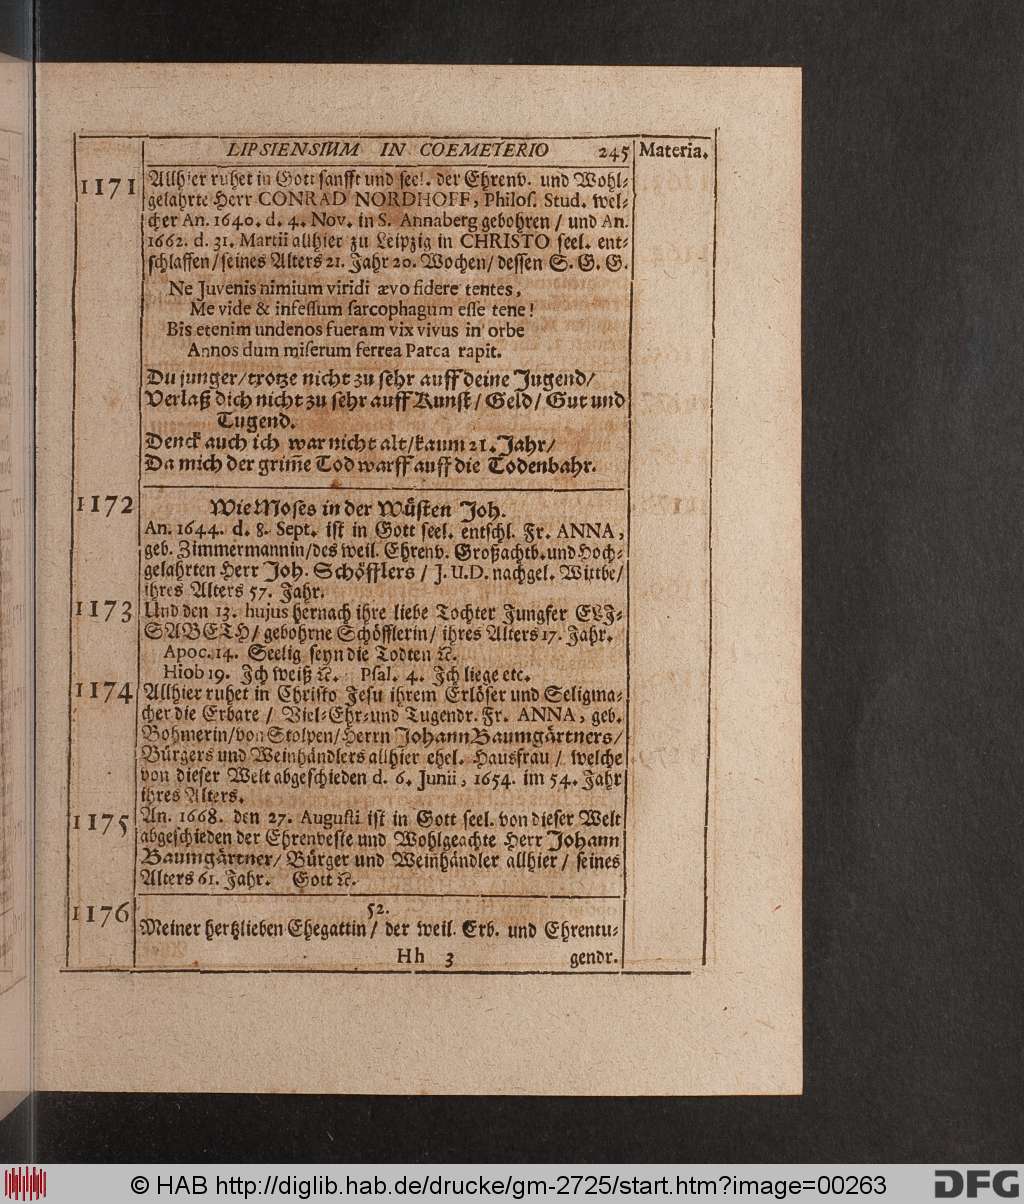 LIPSIENSIUM IN COEMETERIO 245 Materia.
1171 Allhier ruhet in Gott sanfft und seel. der Ehrenv. und Wohl-
gelahrte Herr CONRAD NORDHOFF, Philos. Stud. wel-
cher An. 1640. d. 4. Nov. in S. Annaberg gebohren / und An.
1662. d. 31. Martii allhier zu Leipzig in CHRISTO seel. ent-
schlaffen / seines Alters 21. Jahr 20. Wochen / dessen S. G. G.
Ne Juvenis nimium viridi ævo fidere tentes,
Me vide & infessum sarcophagum esse tene!
Bis etenim undenos fueram vix vivus in orbe
Annos dum miserum ferrea Parca rapit.
Du junger / trotze nicht zu sehr auff deine Jugend /
Verlaß dich nicht zu sehr auff Kunst / Geld / Gut und
Tugend.
Denck auch ich war nicht alt / kaum 21. Jahr /
Da mich der grim̃e Tod warff auff die Todenbahr.
1172 Wie Moses in der Wüsten Joh.
An. 1644. d. 8. Sept. ist in Gott seel. entschl. Fr. ANNA,
geb. Zimmermannin / des weil. Ehrenv. Großachtb. und Hoch-
gelahrten Herr Joh. Schöfflers / J. U. D. nachgel. Wittbe /
ihres Alters 57. Jahr.
1173 Und den 13. hujus hernach ihre liebe Tochter Jungfer ELI-
SABETH / gebohrne Schöfflerin / ihres Alters 17. Jahr.
Apoc. 14. Seelig seyn die Todten ꝛc.
Hiob 19. Ich weiß ꝛc. Psal. 4. Ich liege etc.
1174 Allhier ruhet in Christo Jesu ihrem Erlöser und Seligma-
cher die Erbare / Viel-Ehr-und Tugendr. Fr. ANNA, geb.
Bohmerin / von Stolpen / Herrn Johann Baumgärtners /
Bürgers und Weinhändlers allhier ehel. Hausfrau / welche
von dieser Welt abgeschieden d. 6. Junii, 1654. im 54. Jahr
ihres Alters.
1175 An. 1668. den 27. Augusti ist in Gott seel. von dieser Welt
abgeschieden der Ehrenveste und Wohlgeachte Herr Johann
Baumgärtner / Bürger und Weinhändler allhier / seines
Alters 61. Jahr. Gott ꝛc.
52.
1176 Meiner hertzlieben Ehegattin / der weil. Erb. und Ehrentu-
Hh 3 gendr.
© HAB http://diglib.hab.de/drucke/gm-2725/start.htm?image=00263
DFG